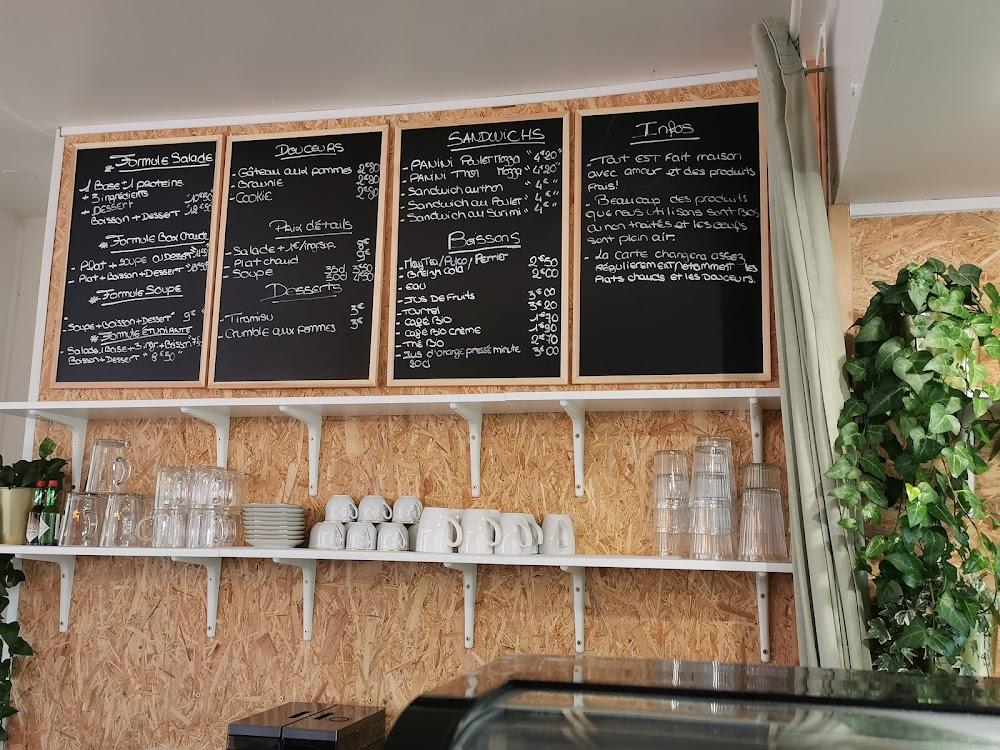 * Formule Salade
1 Base + 1 proteine
+ 3 ingrédients
+ DESSERT
Boisson + DESSERT
* Formule Box Chaude
- Plat + soupe ou DESSERT
- Plat + Boisson + DESSERT
* Formule Soupe
- Soupe + Boisson + DESSERT " 9€ "
* Formule ÉTUDIANTE
- Salade 1 Base + 3 ingr. + Boisson
Boisson + DESSERT " 8€50 "
Douceurs
- Gâteau aux pommes 2€50
- Brownie 2€50
- Cookie 2€50
Prix détails
- Salade + 1€/ingr. sup.
- Plat chaud
- Soupe
Desserts
- Tiramisu 3€
- Crumble aux pommes 3€
SANDWICHS
- PANINI Poulet Mozza " 4€20 "
- PANINI Thon Mozza " 4€20 "
- Sandwich au thon " 4€ "
- Sandwich au Poulet " 4€ "
- Sandwich au Surimi " 4€ "
Boissons
- May Tea / Pulco / Perrier 2€50
- Breizh Cola 2€00
- EAU
- JUS DE fruits 3€00
- Tourtel 3€20
- Café Bio 1€70
- Café Bio crème
- Thé Bio
- Jus d'orange pressé minute 3€00
20cl
Infos
- Tout EST Fait maison
avec amour et des produits
frais!
- Beaucoup des produits
que nous utilisons sont Bios
ou non traités et les oeufs
sont plein air.
- La carte changera assez
régulièrement notamment les
Plats chauds et les Douceurs.